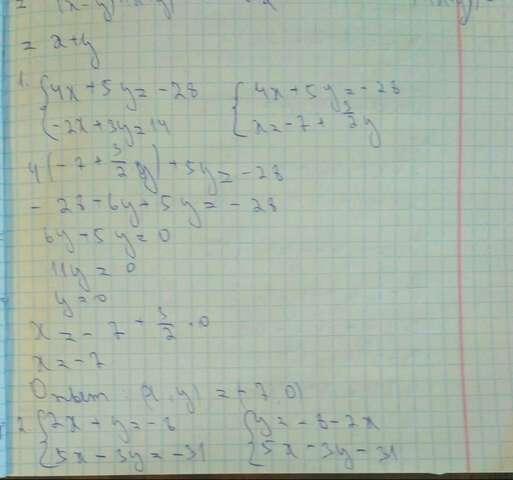 = x+y
1. {4x+5y=-28 {4x+5y=-28
{-2x+3y=14 {x=-7+3/2y
4(-7+3/2y)+5y=-28
-28+6y+5y=-28
6y+5y=0
11y=0
y=0
x=-7+3/2·0
x=-7
Ответ: (x,y)=(-7,0)
2. {2x+y=-8 {y=-8-2x
{5x-3y=-31 {5x-3y-31